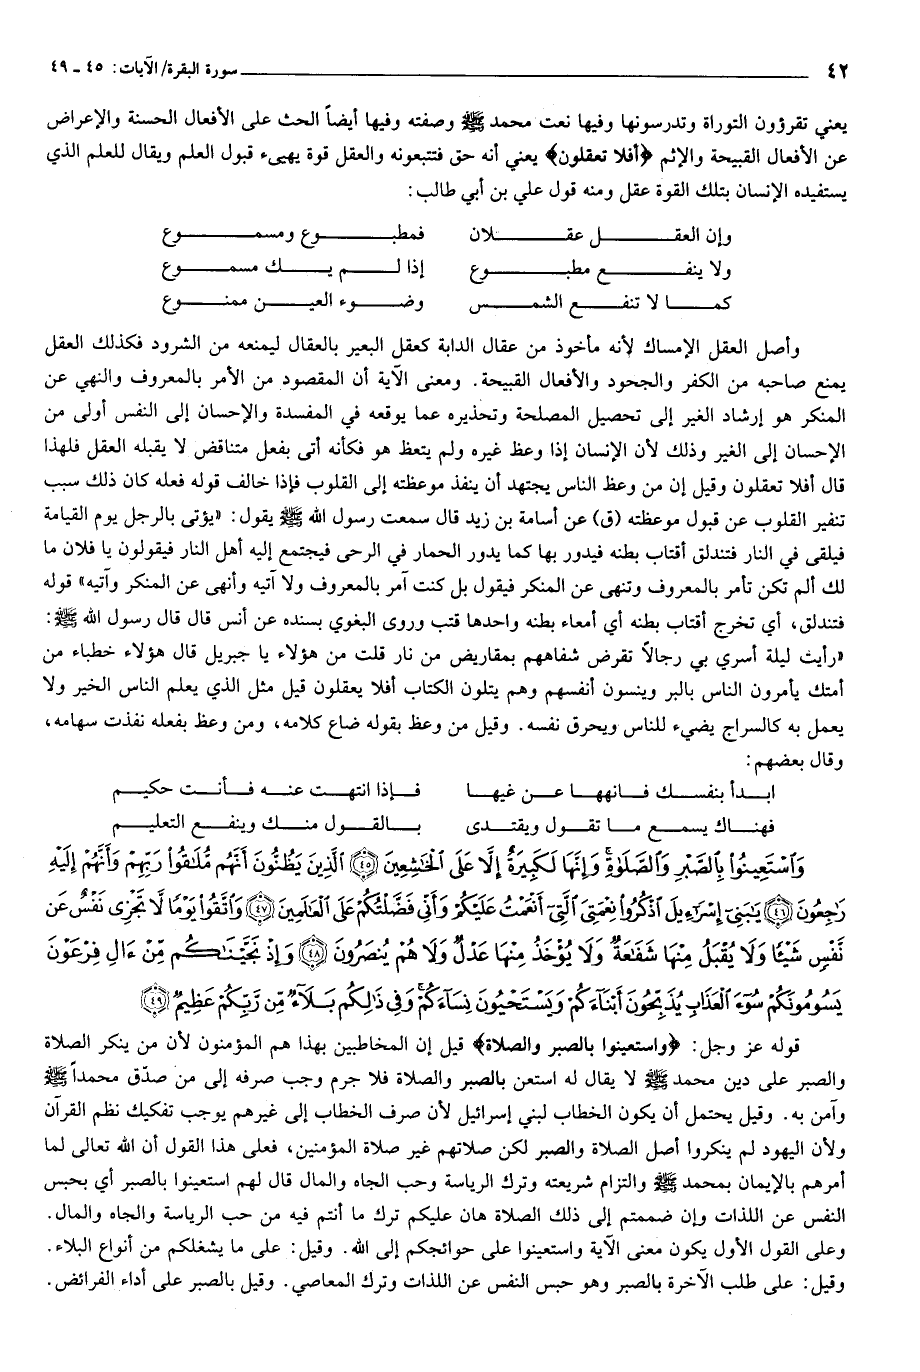 ٤٢ سورة البقرة/ الآيات: ٤٥ ـ ٤٩
يعني تقرؤون التوراة وتدرسونها وفيها نعت محمد ﷺ وصفته وفيها أيضاً الحث على الأفعال الحسنة والإعراض
عن الأفعال القبيحة والإثم ﴿أفلا تعقلون﴾ يعني أنه حق فتتبعونه والعقل قوة يهيىء قبول العلم ويقال للعلم الذي
يستفيده الإنسان بتلك القوة عقل ومنه قول علي بن أبي طالب:
وإن العقـل عقـلان فمطبـوع ومسمـوع
ولا ينفـع مطبـوع إذا لـم يـك مسمـوع
كمـا لا تنفـع الشمـس وضـوء العيـن ممنـوع
وأصل العقل الإمساك لأنه مأخوذ من عقال الدابة كعقل البعير بالعقال ليمنعه من الشرود فكذلك العقل
يمنع صاحبه من الكفر والجحود والأفعال القبيحة. ومعنى الآية أن المقصود من الأمر بالمعروف والنهي عن
المنكر هو إرشاد الغير إلى تحصيل المصلحة وتحذيره عما يوقعه في المفسدة والإحسان إلى النفس أولى من
الإحسان إلى الغير وذلك لأن الإنسان إذا وعظ غيره ولم يتعظ هو فكأنه أتى بفعل متناقض لا يقبله العقل فلهذا
قال أفلا تعقلون وقيل إن من وعظ الناس يجتهد أن ينفذ موعظته إلى القلوب فإذا خالف قوله فعله كان ذلك سبب
تنفير القلوب عن قبول موعظته (ق) عن أسامة بن زيد قال سمعت رسول الله ﷺ يقول: «يؤتى بالرجل يوم القيامة
فيلقى في النار فتندلق أقتاب بطنه فيدور بها كما يدور الحمار في الرحى فيجتمع إليه أهل النار فيقولون يا فلان ما
لك ألم تكن تأمر بالمعروف وتنهى عن المنكر فيقول بل كنت آمر بالمعروف ولا آتيه وأنهى عن المنكر وآتيه» قوله
فتندلق، أي تخرج أقتاب بطنه أي أمعاء بطنه واحدها قتب وروى البغوي بسنده عن أنس قال قال رسول الله ﷺ:
«رأيت ليلة أسري بي رجالاً تقرض شفاههم بمقاريض من نار قلت من هؤلاء يا جبريل قال هؤلاء خطباء من
أمتك يأمرون الناس بالبر وينسون أنفسهم وهم يتلون الكتاب أفلا يعقلون قيل مثل الذي يعلم الناس الخير ولا
يعمل به كالسراج يضيء للناس ويحرق نفسه. وقيل من وعظ بقوله ضاع كلامه، ومن وعظ بفعله نفذت سهامه،
وقال بعضهم:
ابـدأ بنفسـك فـانههـا عـن غيهـا فـإذا انتهـت عنـه فـأنـت حكيـم
فهنـاك يسمـع مـا تقـول ويقتـدى بـالقـول منـك وينفـع التعليـم
وَاسْتَعِينُوا بِالصَّبْرِ وَالصَّلَاةِ وَإِنَّهَا لَكَبِيرَةٌ إِلَّا عَلَى الْخَاشِعِينَ ﴿٤٥﴾ الَّذِينَ يَظُنُّونَ أَنَّهُم مُّلَاقُوا رَبِّهِمْ وَأَنَّهُمْ إِلَيْهِ
رَاجِعُونَ ﴿٤٦﴾ يَابَنِي إِسْرَائِيلَ اذْكُرُوا نِعْمَتِيَ الَّتِي أَنْعَمْتُ عَلَيْكُمْ وَأَنِّي فَضَّلْتُكُمْ عَلَى الْعَالَمِينَ ﴿٤٧﴾ وَاتَّقُوا يَوْمًا لَّا تَجْزِي نَفْسٌ عَن
نَّفْسٍ شَيْئًا وَلَا يُقْبَلُ مِنْهَا شَفَاعَةٌ وَلَا يُؤْخَذُ مِنْهَا عَدْلٌ وَلَا هُمْ يُنصَرُونَ ﴿٤٨﴾ وَإِذْ نَجَّيْنَاكُم مِّنْ ءَالِ فِرْعَوْنَ
يَسُومُونَكُمْ سُوءَ الْعَذَابِ يُذَبِّحُونَ أَبْنَاءَكُمْ وَيَسْتَحْيُونَ نِسَاءَكُمْ وَفِي ذَلِكُم بَلَاءٌ مِّن رَّبِّكُمْ عَظِيمٌ ﴿٤٩﴾
قوله عز وجل: ﴿واستعينوا بالصبر والصلاة﴾ قيل إن المخاطبين بهذا هم المؤمنون لأن من ينكر الصلاة
والصبر على دين محمد ﷺ لا يقال له استعن بالصبر والصلاة فلا جرم وجب صرفه إلى من صدّق محمداً ﷺ
وآمن به. وقيل يحتمل أن يكون الخطاب لبني إسرائيل لأن صرف الخطاب إلى غيرهم يوجب تفكيك نظم القرآن
ولأن اليهود لم ينكروا أصل الصلاة والصبر لكن صلاتهم غير صلاة المؤمنين، فعلى هذا القول أن الله تعالى لما
أمرهم بالإيمان بمحمد ﷺ والتزام شريعته وترك الرياسة وحب الجاه والمال قال لهم استعينوا بالصبر أي بحبس
النفس عن اللذات وإن ضممتم إلى ذلك الصلاة هان عليكم ترك ما أنتم فيه من حب الرياسة والجاه والمال.
وعلى القول الأول يكون معنى الآية واستعينوا على حوائجكم إلى الله. وقيل: على ما يشغلكم من أنواع البلاء.
وقيل: على طلب الآخرة بالصبر وهو حبس النفس عن اللذات وترك المعاصي. وقيل بالصبر على أداء الفرائض.